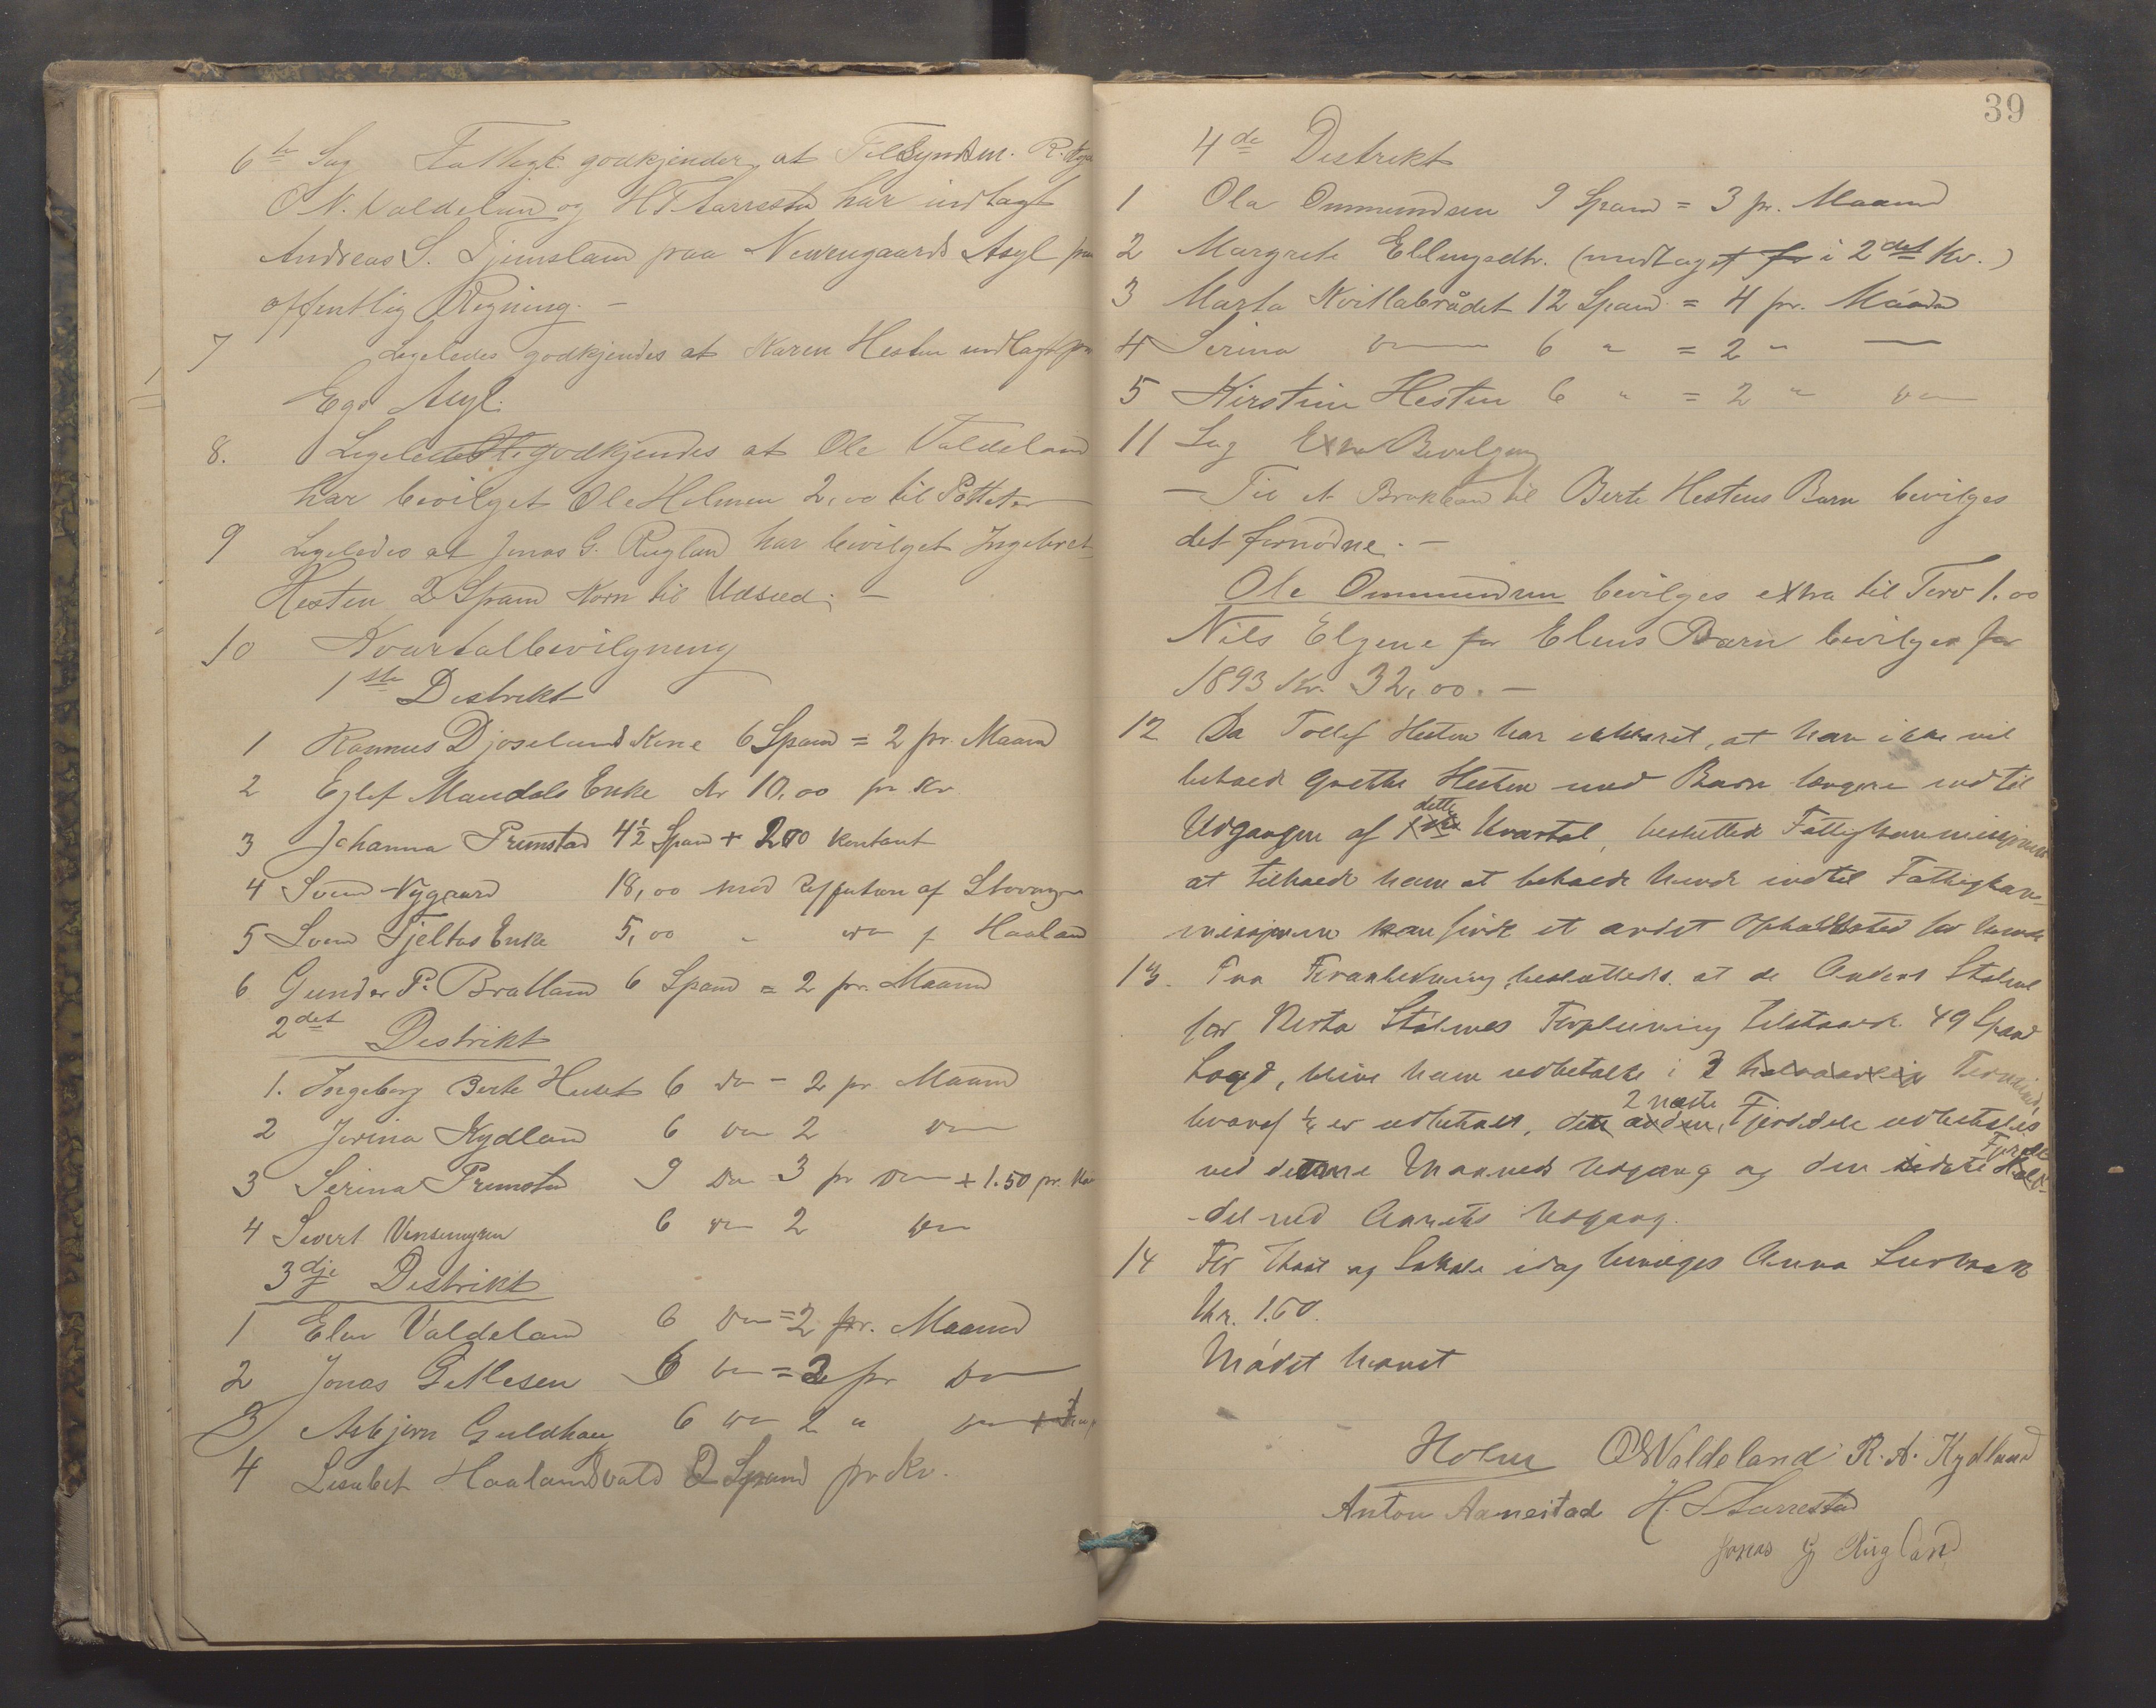 6te Sag Fattigk. godkjender, at Tilsynsm. R.
O N. Valdeland og H T Harrestad har indtagt
Andreas S. Tjemsland paa Nevengaards Asyl paa
offentlig Regning. —
7 Ligeledes godkjendes at Karen Hesten indlagt paa
Egs Asyl.
8. Ligeledes godkjendes at Ole Valdeland
har bevilget Ole Holmen 2,00 til Potteter
9 Ligeledes at Jonas G. Rugland har bevilget Ingebret
Hesten 2 Spand Korn til Udsæd. —
10 Kvartalbevilgning
1ste Distrikt
1 Rasmus Djoselands Kone 6 Spand = 2 pr. Maaned
2 Eglef Maudals Enke Kr 10,00 pr Kv.
3 Johanna Premstad 4½ Spand + 200 kontant
4 Svend Nygaard 18,00 mod Refusion af Stavanger
5 Svend Tjeltas Enke 5,00 " do f Haaland
6 Gunder P. Bratland 6 Spand = 2 pr. Maaned
2det Distrikt
1. Ingeborg Berte Huset 6 do = 2 pr Maaned
2 Jorina Kydland 6 do 2 do
3 Serina Premstad 9 do 3 pr do + 1.50 pr.
4 Sivert Vensemyren 6 do 2 do
3dje Distrikt
1 Elen Valdeland 6 do = 2 pr. Maaned
2 Jonas Gitlesen 6 do = 2 pr do
3 Asbjørn Guldhaug 6 do 2 " do
4 Lisabet Haalandsvald 2 Spand pr Kv.
39
4de Distrikt
1 Ola Ommundsen 9 Spand = 3 pr. Maaned
2 Margrete Ellingsdtr. (medtaget for i 2det Kv.)
3 Marta Kvitlabrådet 12 Spand = 4 pr. Maaned
4 Serina do 6 " = 2 " —
5 Kirstine Hesten 6 " = 2 " do
11 Sag Extra Bevilgning
— Til et Brokbaand til Berte Hestens Barn bevilges
det fornødne. —
Ole Ommundsen bevilges extra til Torv 1.00
Nils Elgene for Elens Barn bevilges for
1893 Kr. 32,00. —
12 Da Tollef Hesten har erklæret, at han ikke vil
beholde Grethe Hesten med Barn længere end til
Udgangen af dette Kvartal, besluttede Fattigkommissionen
at tilholde ham at beholde hende indtil Fattigkom-
missionen kan finde et andet Opholdssted for hende
13. Paa Foranledning besluttedes at de Anders Stølene
for Berta Stølenes Forpleining tilstaaede 49 Spand
Logd, blive ham udbetalte i 3 halvaarlige Terminer,
hvoraf ¼ er udbetalt, de 2 næste Fjerdedele udbetales
ved denne Maaneds Udgang og den sidste Fjerde-
-del ved Aarets Udgang.
14 For Kost og Lokale idag bevilges Anna
Kr. 1.60.
Mødet hævet
Holm O N Valdeland R. A. Kydland
Anton Aanestad H. T Harrestad
Jonas G Rugland